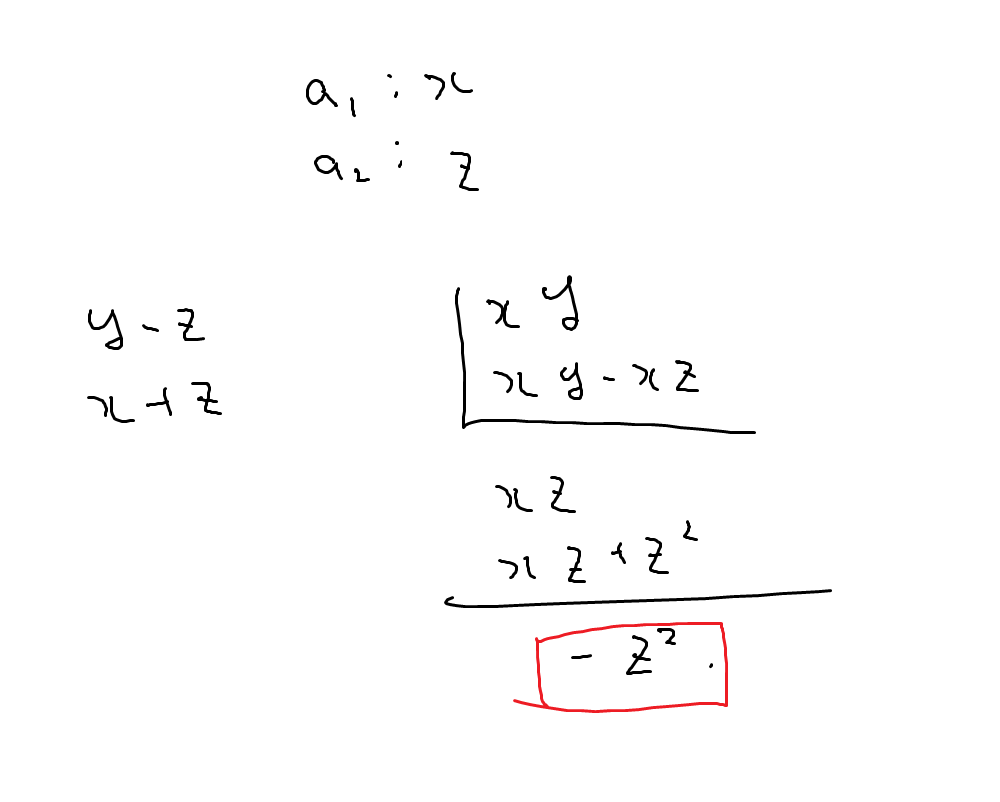 a₁ : x
a₂ : z
y - z
x + z
x y
x y - x z
x z
x z + z²
- z² .